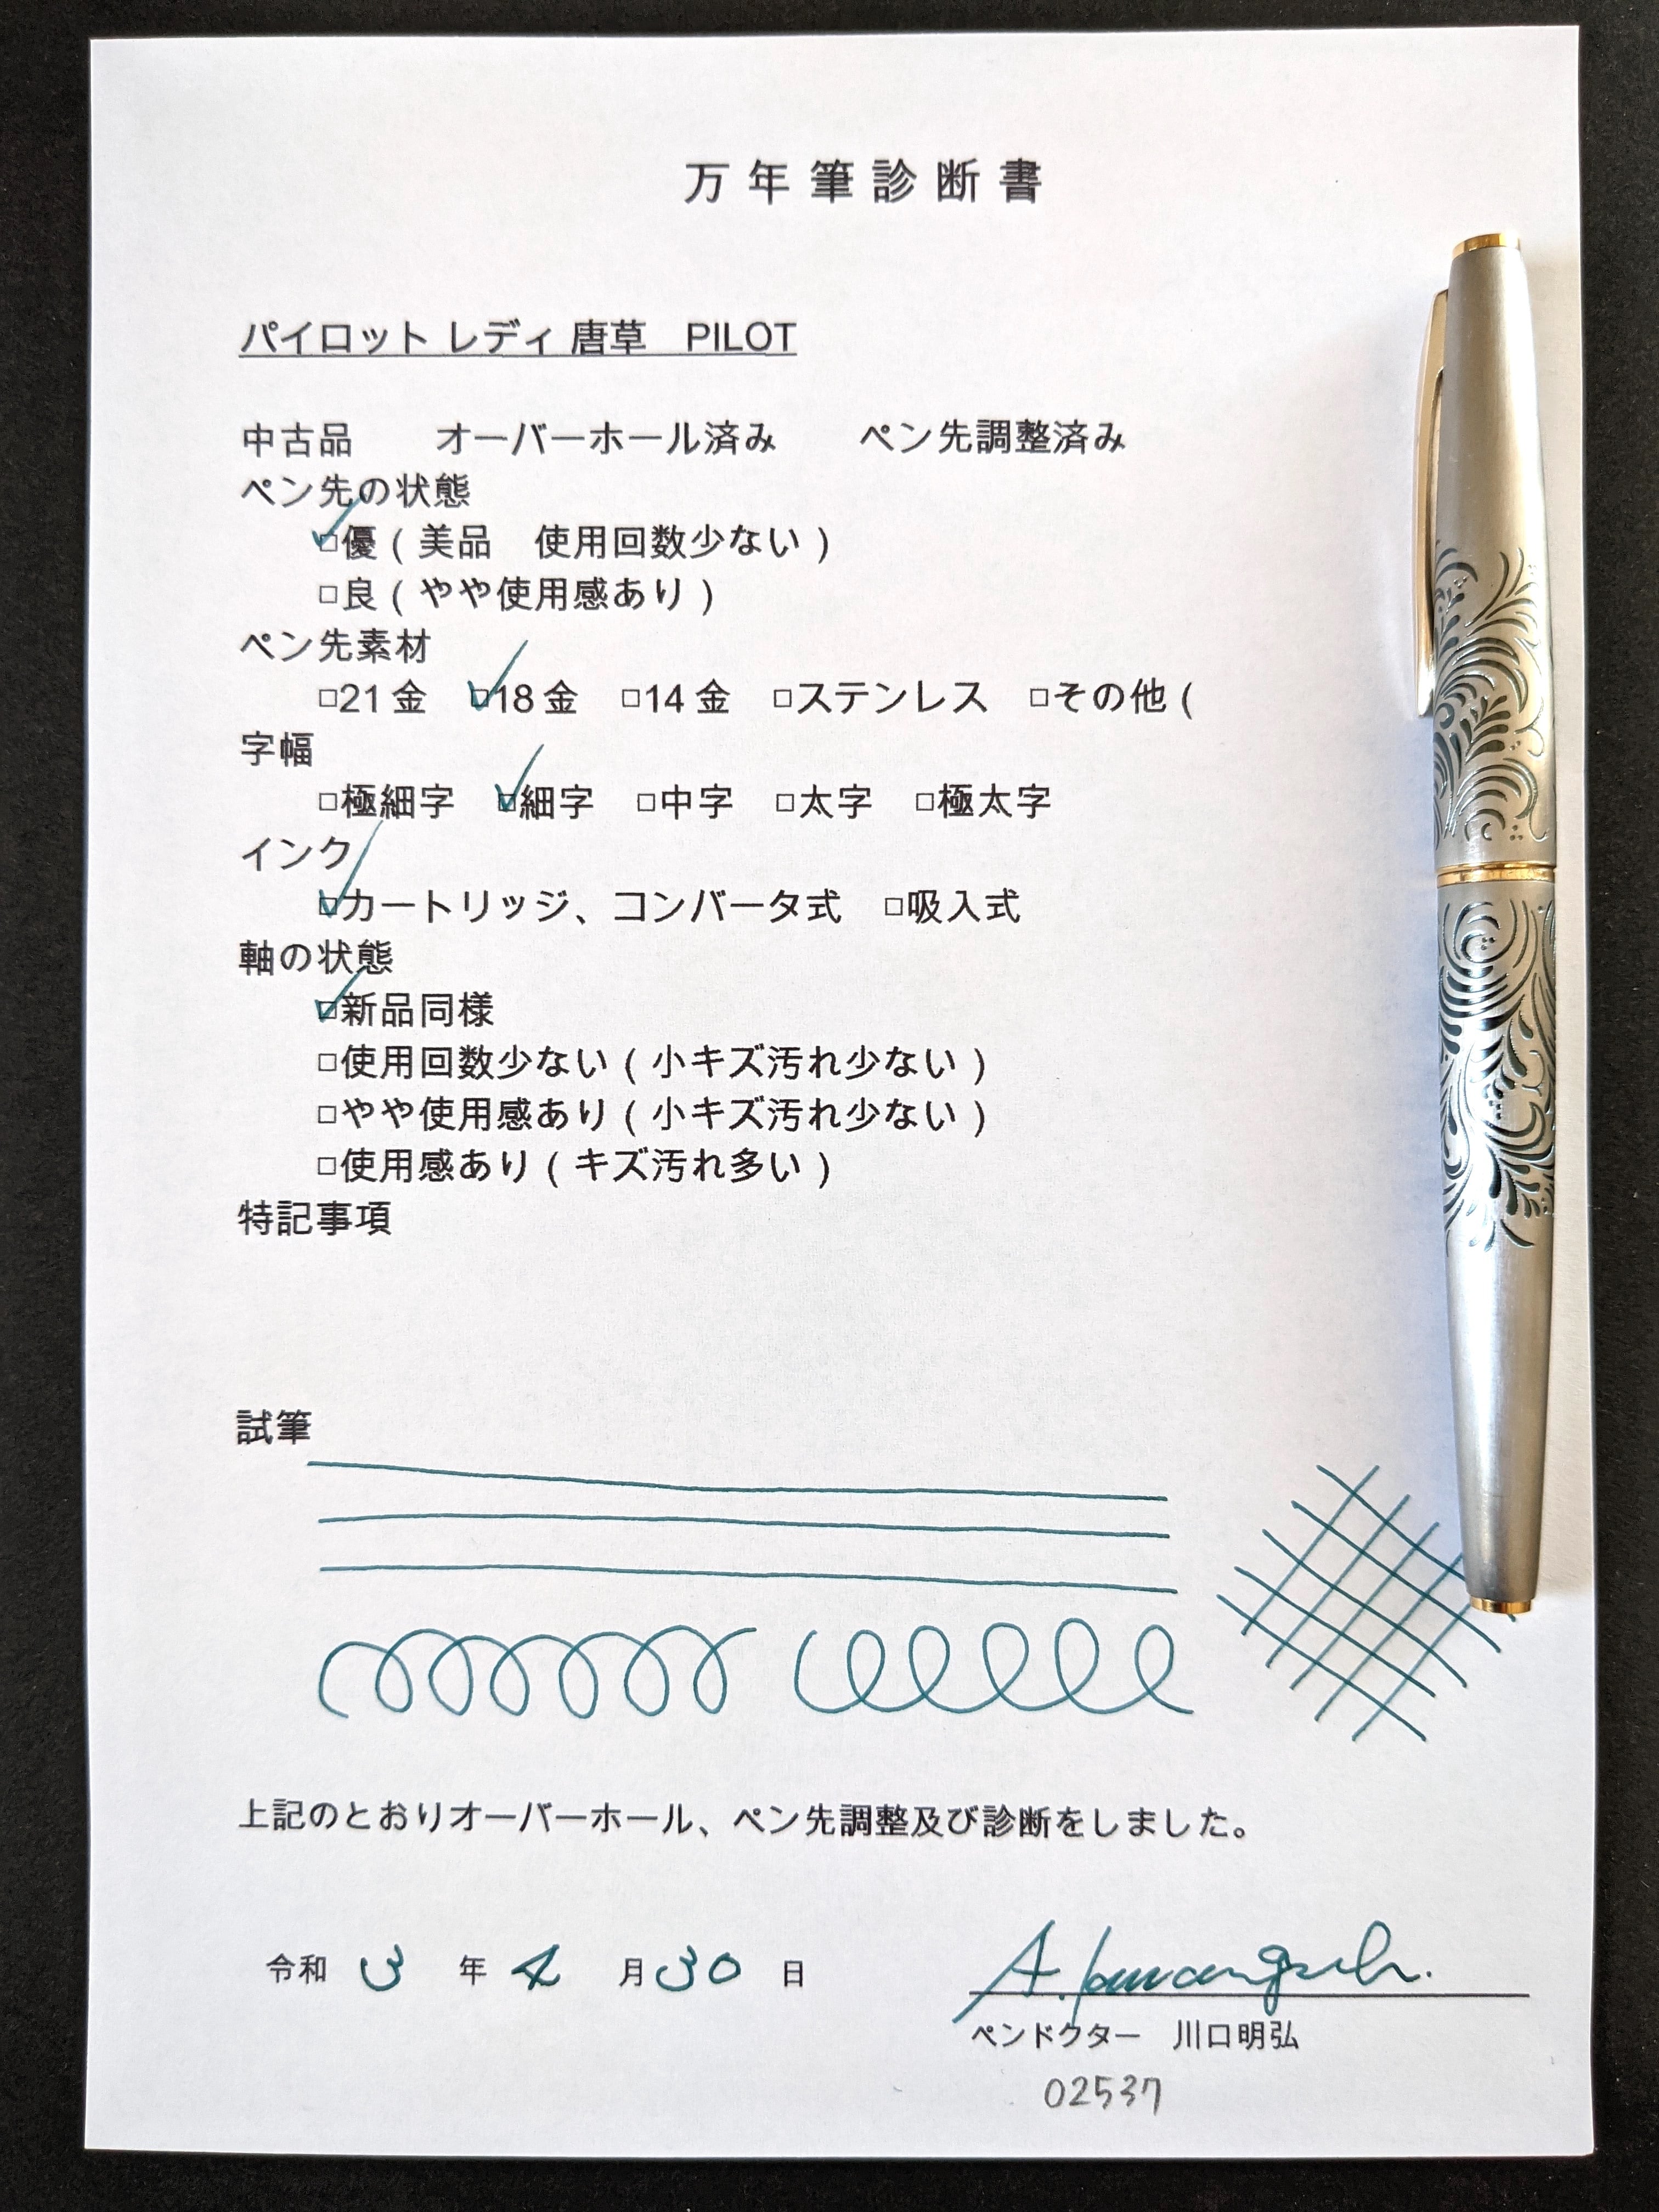 万年筆診断書
パイロット レディ 唐草　PILOT
中古品　　オーバーホール済み　　ペン先調整済み
ペン先の状態
☑優（美品　使用回数少ない）
□良（やや使用感あり）
ペン先素材
□21金　☑18金　□14金　□ステンレス　□その他（
字幅
□極細字　☑細字　□中字　□太字　□極太字
インク
☑カートリッジ、コンバータ式　□吸入式
軸の状態
☑新品同様
□使用回数少ない（小キズ汚れ少ない）
□やや使用感あり（小キズ汚れ少ない）
□使用感あり（キズ汚れ多い）
特記事項
試筆
上記のとおりオーバーホール、ペン先調整及び診断をしました。
令和 3 年 4 月 30 日
A. Kawaguchi.
ペンドクター　川口明弘
02537